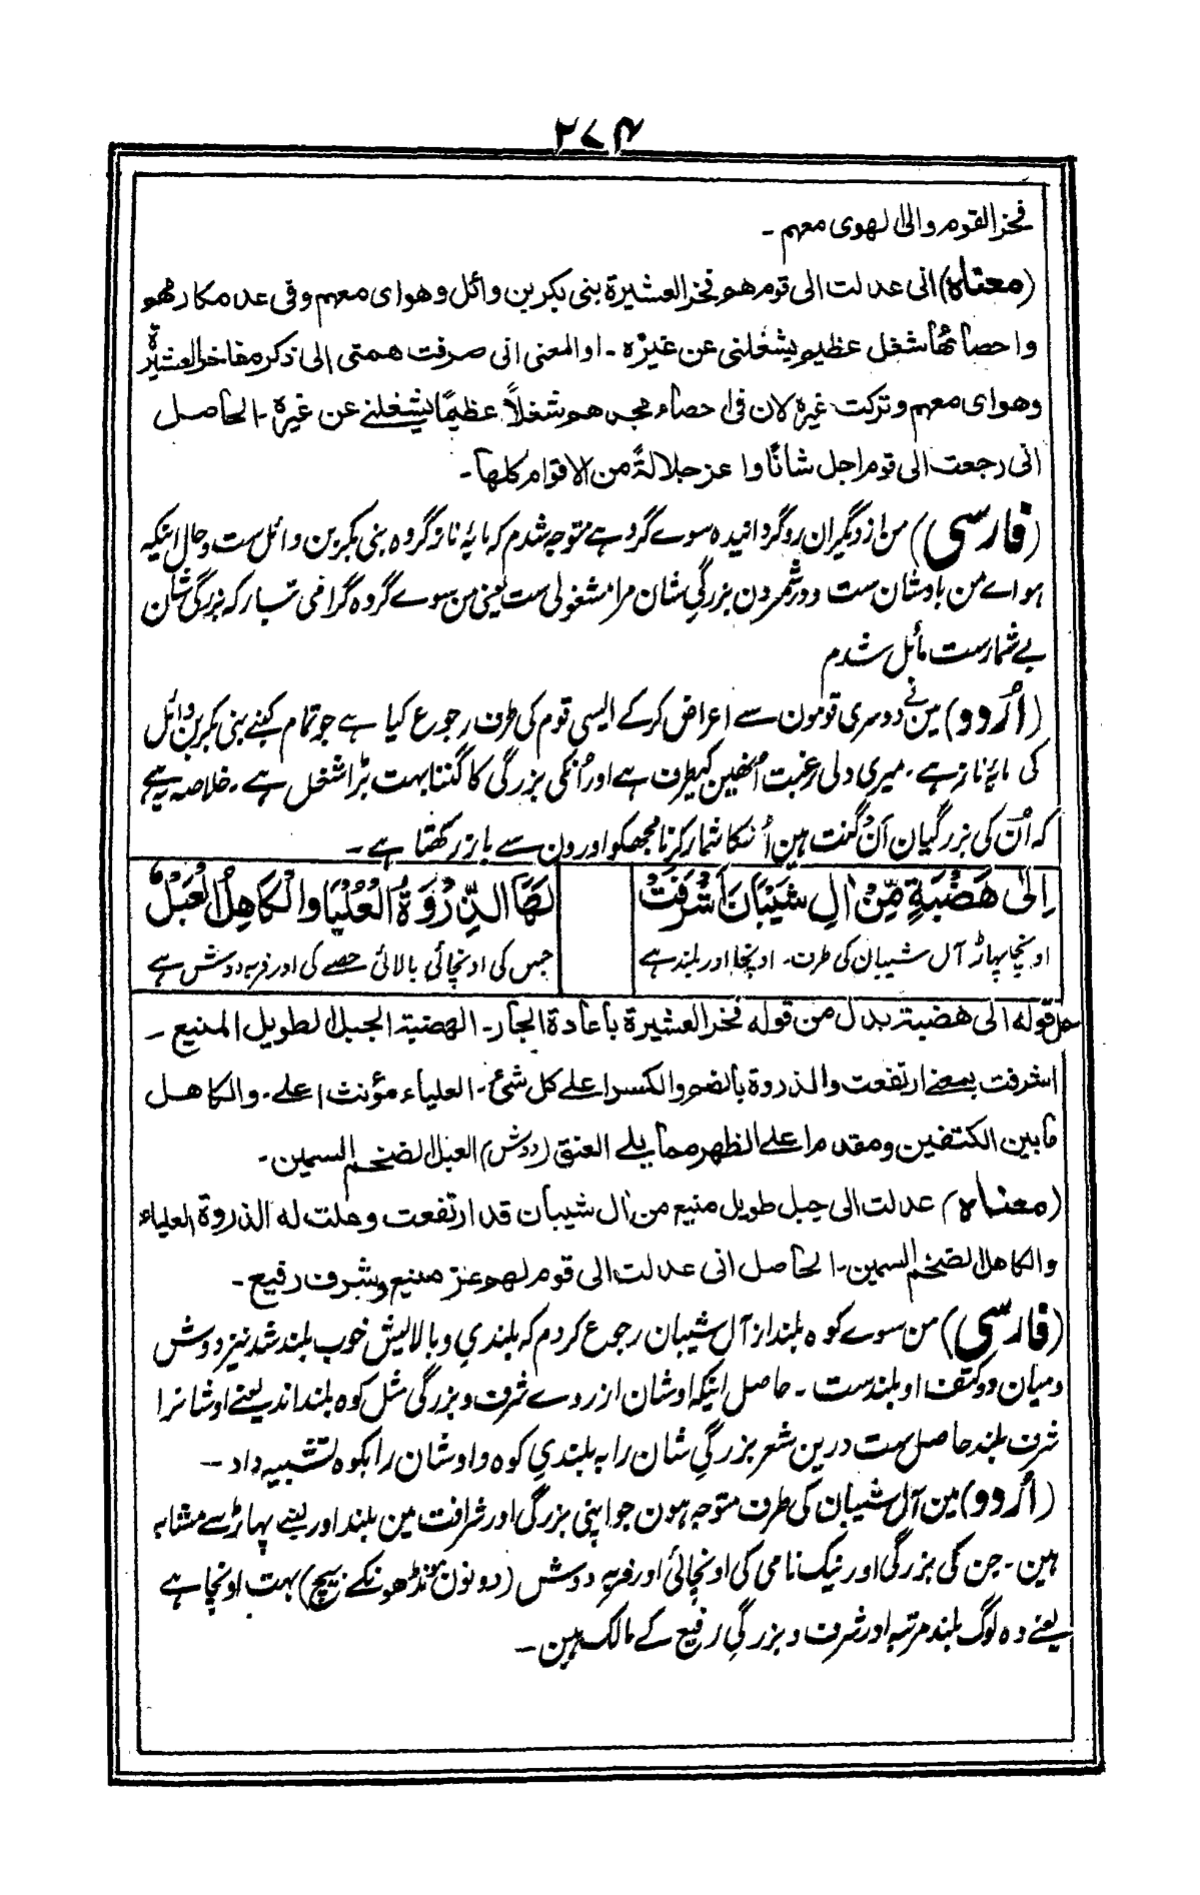 ۲۷۴
فخر القوم والیٰ لهوی معهم -
(معناه) انی عدلت الی قوم هو فخر العشیرة بنی بکر بن وائل وهوای معهم وفی عد مکارمهم
واحصائها شغل عظیم یشغلنی عن غیرہ - او المعنی انی صرفت همتی الی ذکر مفاخر العشیرة
وهوای معهم وترکت غیرہ لان فی احصاء مجدهم شغلاً عظیمًا یشغلنے عن غیرہ - الحاصل
انی رجعت الی قوم اجل شانًا واعز جلالةً من الاقوام کلها -
(فارسی) من از دیگران رو گردانیده سوے گروہے متوجہ شدم کہ مایۂ ناز گروہ بنی بکر بن وائل ست وحال اینکہ
ہواے من باوشان ست و در شمردن بزرگیِ شان مرا مشغولی ست یعنی من سوے گروہ گرامی تبار کہ بزرگی شان
بے شمار ست مائل شدم
(اُردو) مین نے دوسری قومون سے اعراض کرکے ایسی قوم کی طرف رجوع کیا ہے جو تمام کنبے بنی بکر بن وائل
کی مایۂ ناز ہے - میری دلی رغبت اُنھین کیطرف ہے اور اُنکی بزرگی کا گننا بہت بڑا شغل ہے - خلاصہ یہ ہے
کہ اُن کی بزرگیان اَن گنت ہین اُنکا شمار کرنا مجھکو اورون سے باز رکھتا ہے -
اِلیٰ هَضْبَةٍ مِّنْ اٰلِ شَیْبَانَ اَشْرَفَتْ لَهَا الذِّرْوَةُ الْعُلْیَا وَالْکَاهِلُ الْعَبْلُ
اونچا پہاڑ آل شیبان کی طرف - اونچا اور بلند ہے جس کی اونچائی بالائی حصے کی اور فربہ دوش ہے
حل قوله الی هضبة بدل من قوله فخر العشیرة باعادة الجار - الهضبة الجبل الطویل المنیع -
اشرفت بمعنے ارتفعت والذروة بالضم والکسر اعلے کل شئ - العلیاء مؤنث اعلے - والکاهل
ما بین الکتفین ومقدم اعلے الظهر مما یلے العنق (دوش) العبل الضخم السمین -
(معناه) عدلت الی جبل طویل منیع من اٰل شیبان قد ارتفعت وعلت له الذروة العلیاء
والکاهل الضخم السمین - الحاصل انی عدلت الی قوم لهم عز منیع وشرف رفیع -
(فارسی) من سوے کوہ بلند از آل شیبان رجوع کردم کہ بلندیِ و بالایش خوب بلند شد نیز دوش
و میان دو کتف او بلند ست - حاصل اینکہ اوشان از روے شرف و بزرگی مثل کوہ بلند اند یعنے اوشانرا
شرف بلند حاصل ست درین شعر بزرگیِ شان را بہ بلندیِ کوہ و اوشان را بکوہ تشبیہ داد -
(اُردو) مین آل شیبان کی طرف متوجہ ہون جو اپنی بزرگی اور شرافت مین بلند اور لنبے پہاڑ سے مشابہ
ہین - جن کی بزرگی اور نیک نامی کی اونچائی اور فربہ دوش (دونون مونڈھونکے بیچ) بہت اونچا ہے
یعنے وہ لوگ بلند مرتبہ اور شرف و بزرگیِ رفیع کے مالک ہین -